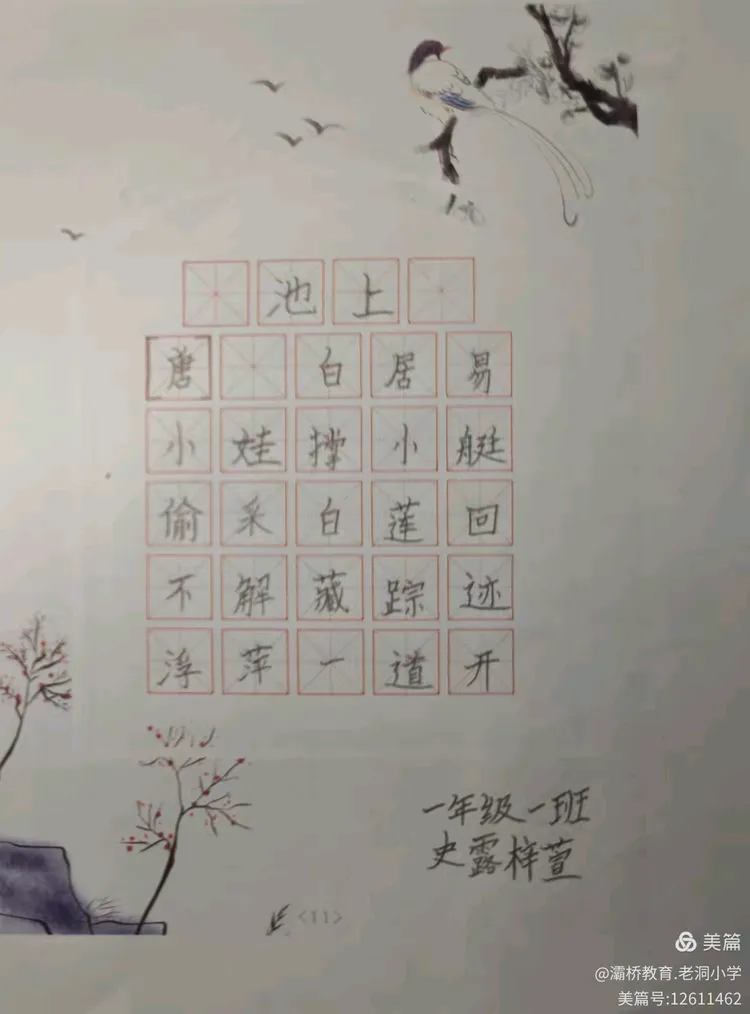 池上
唐 白居易
小娃撑小艇
偷采白莲回
不解藏踪迹
浮萍一道开
一年级一班
史露梓萱
<11>
美篇
@灞桥教育.老洞小学
美篇号:12611462